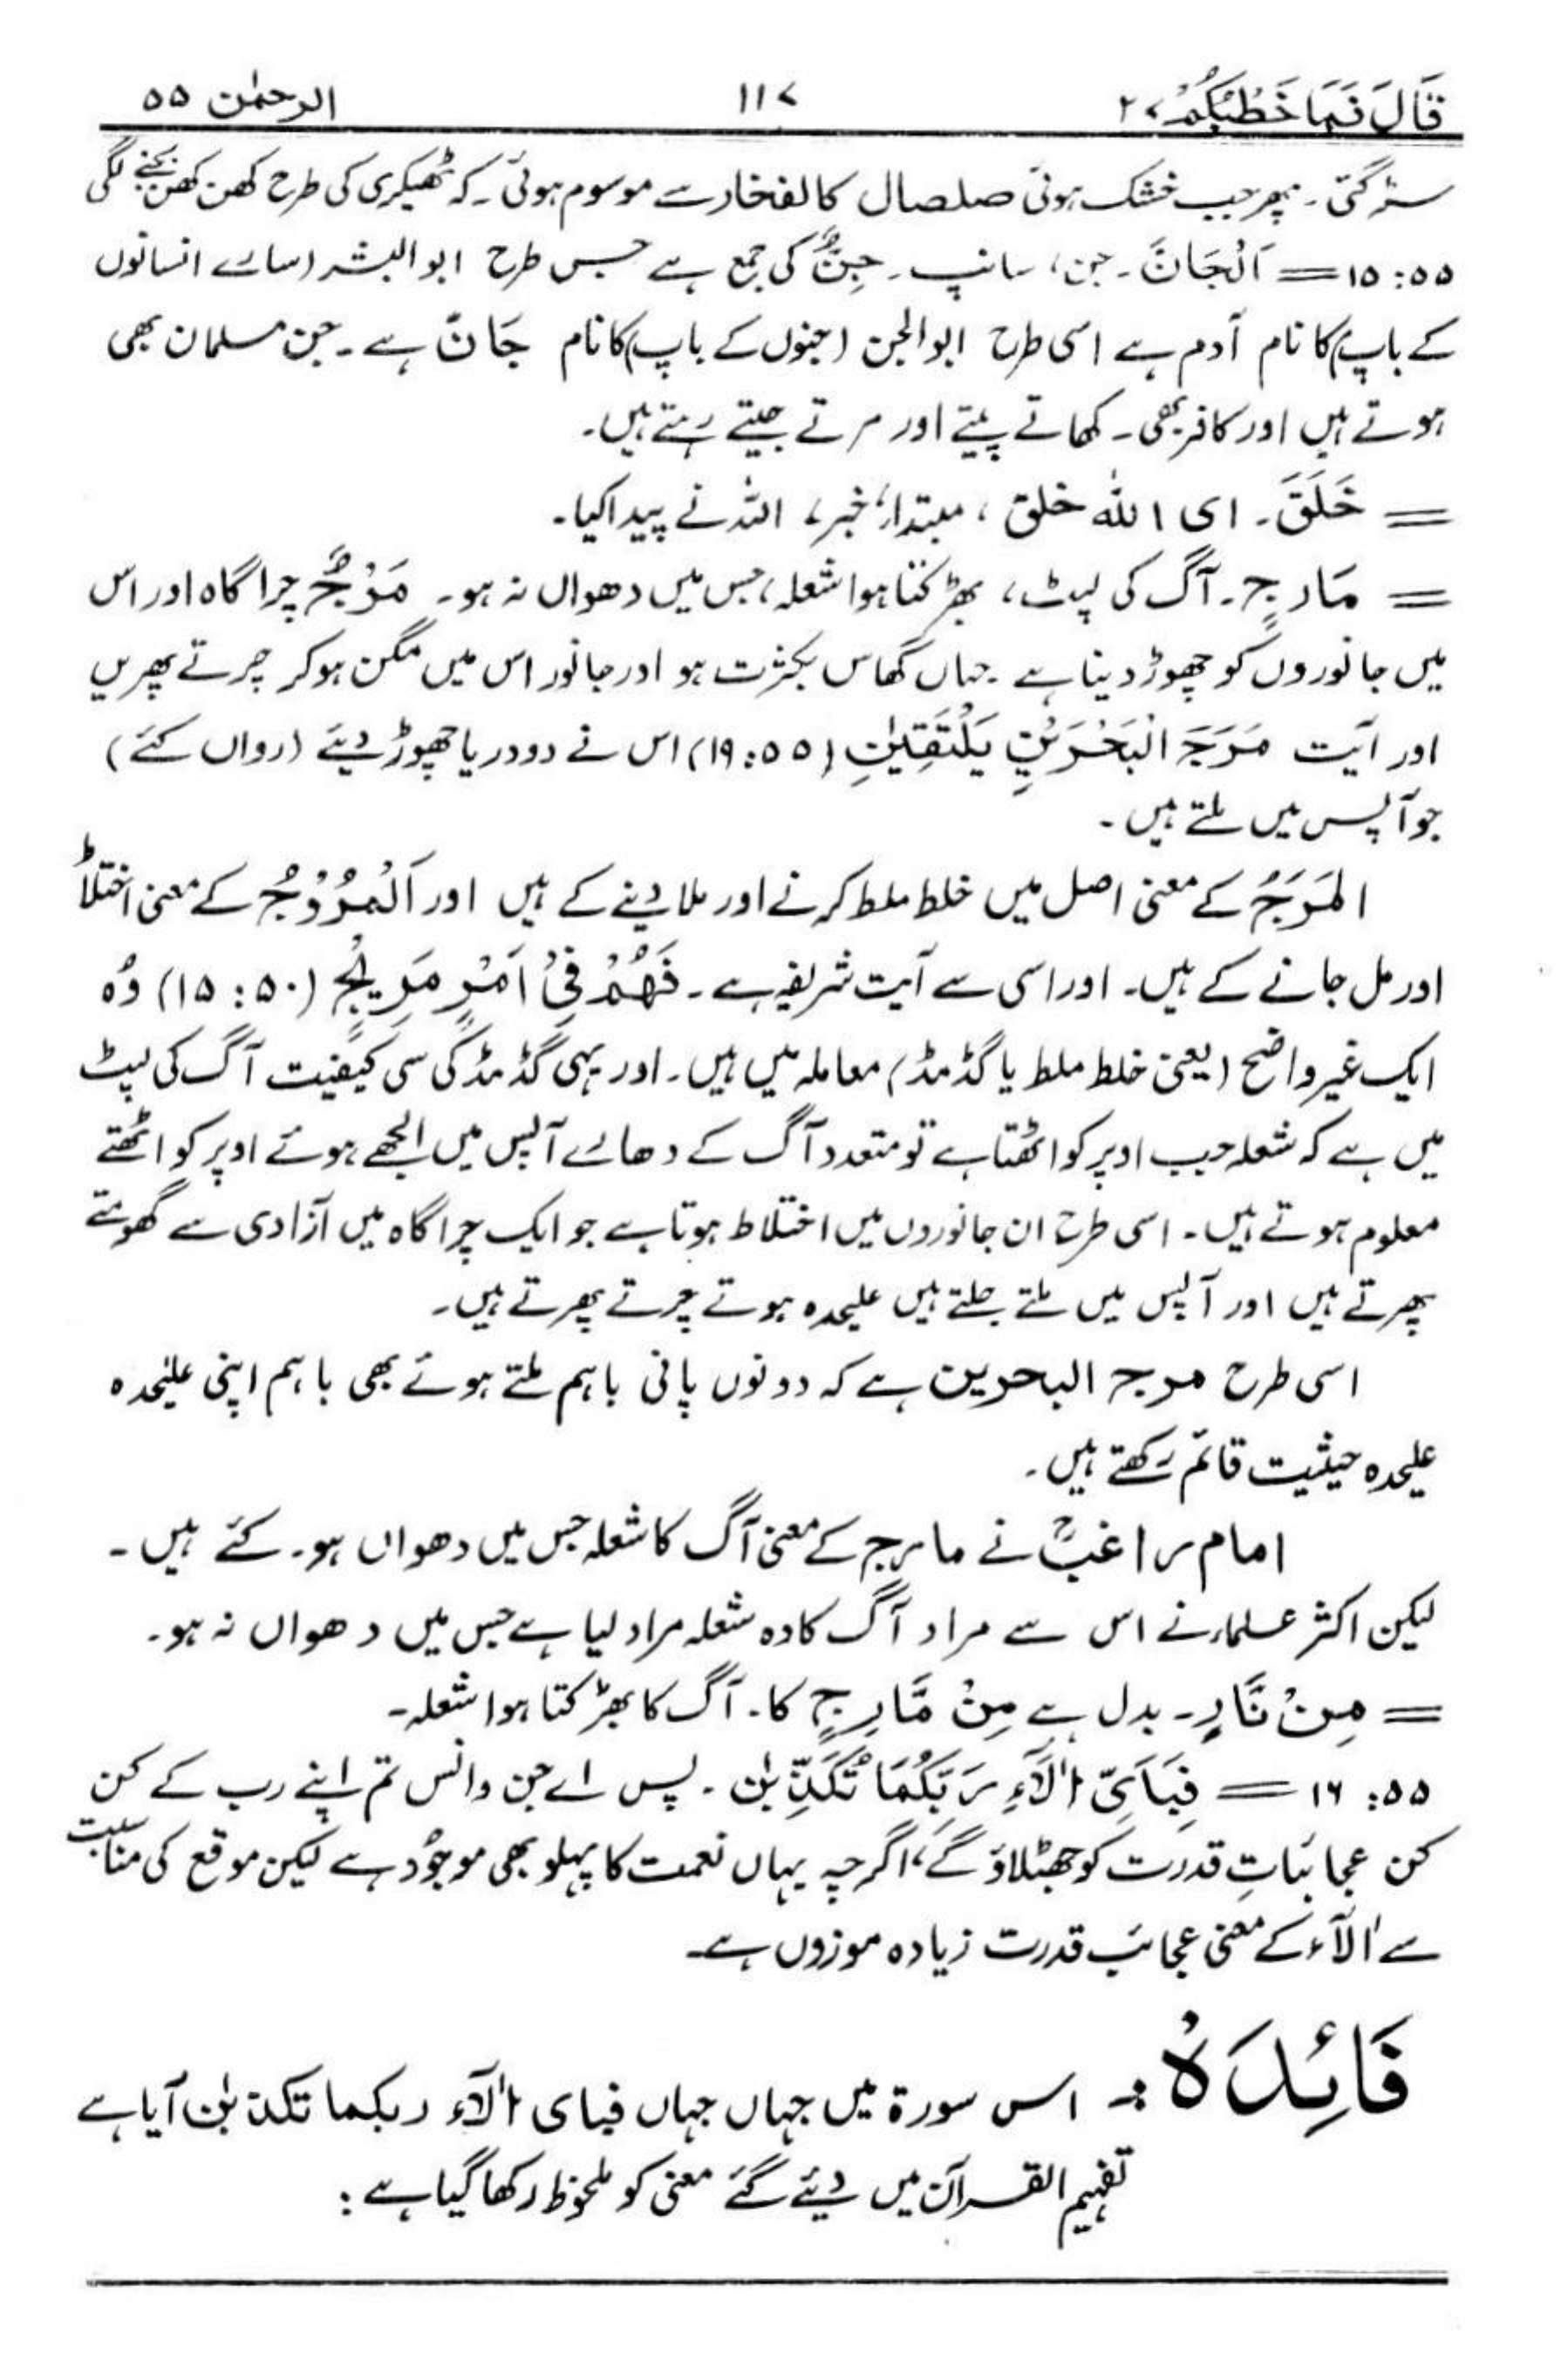 قَالَ فَمَا خَطْبُكُمْ ۲۷ ۱۱۷ الرحمٰن ۵۵
سڑ گئی۔ پھر جب خشک ہوئی صلصال کالفخار سے موسوم ہوئی۔ کہ ٹھیکری کی طرح کھن کھن بجنے لگی
۵۵:۱۵ = اَلْجَانَّ۔ جن، سانپ۔ جِنٌّ کی جمع ہے جس طرح ابوالبشر (سارے انسانوں
کے باپ) کا نام آدم ہے اسی طرح ابوالجن (جنوں کے باپ) کا نام جَانّ ہے۔ جن مسلمان بھی
ہوتے ہیں اور کافر بھی۔ کھاتے پیتے اور مرتے جیتے رہتے ہیں۔
= خَلَقَ۔ ای اللہ خلق ، مبتداء، خبر، اللہ نے پیدا کیا۔
= مَارِجٍ۔ آگ کی لپٹ، بھڑکتا ہوا شعلہ، جس میں دھواں نہ ہو۔ مَرْجٌ چراگاہ اور اس
میں جانوروں کو چھوڑ دینا ہے جہاں گھاس بکثرت ہو اور جانور اس میں مگن ہو کر چرتے پھریں
اور آیت مَرَجَ الْبَحْرَيْنِ يَلْتَقِيٰنِ (۵۵:۱۹) اس نے دو دریا چھوڑ دیئے (رواں کئے)
جو آپس میں ملتے ہیں۔
المَرَجُ کے معنی اصل میں خلط ملط کرنے اور ملا دینے کے ہیں اور اَلْمُرُوْجُ کے معنی اختلاط
اور مل جانے کے ہیں۔ اور اسی سے آیت شریفہ ہے۔ فَهُمْ فِيْ اَمْرٍ مَرِيْجٍ (۵۰:۱۵) وُہ
ایک غیر واضح (یعنی خلط ملط یا گڈمڈ) معاملہ میں ہیں۔ اور یہی گڈمڈ کی سی کیفیت آگ کی لپٹ
میں ہے کہ شعلہ جب اوپر کو اٹھتا ہے تو متعدد آگ کے دھارے آپس میں الجھے ہوئے اوپر کو اٹھتے
معلوم ہوتے ہیں۔ اسی طرح ان جانوروں میں اختلاط ہوتا ہے جو ایک چراگاہ میں آزادی سے گھومتے
پھرتے ہیں اور آپس میں ملتے جلتے ہیں علیحدہ ہوتے چرتے پھرتے ہیں۔
اسی طرح مرج البحرین ہے کہ دونوں پانی باہم ملتے ہوئے بھی باہم اپنی علیحدہ
علیحدہ حیثیت قائم رکھتے ہیں۔
امام راغبؒ نے مارج کے معنی آگ کا شعلہ جس میں دھواں ہو۔ کئے ہیں۔
لیکن اکثر علماء نے اس سے مراد آگ کا وہ شعلہ مراد لیا ہے جس میں دھواں نہ ہو۔
= مِنْ نَّارٍ۔ بدل ہے مِنْ مَّارِجٍ کا۔ آگ کا بھڑکتا ہوا شعلہ۔
۵۵:۱۶ = فَبِاَيِّ اٰلَآءِ رَبِّكُمَا تُكَذِّبٰنِ۔ پس اے جن وانس تم اپنے رب کے کن
کن عجائباتِ قدرت کو جھٹلاؤ گے، اگرچہ یہاں نعمت کا پہلو بھی موجُود ہے لیکن موقع کی مناسبت
سے اٰلَآء کے معنی عجائب قدرت زیادہ موزوں ہے۔
فَائِدَہُ :۔ اس سورۃ میں جہاں جہاں فبای اٰلآء ربکما تکذبٰن آیا ہے
تفہیم القرآن میں دیئے گئے معنی کو ملحوظ رکھا گیا ہے: